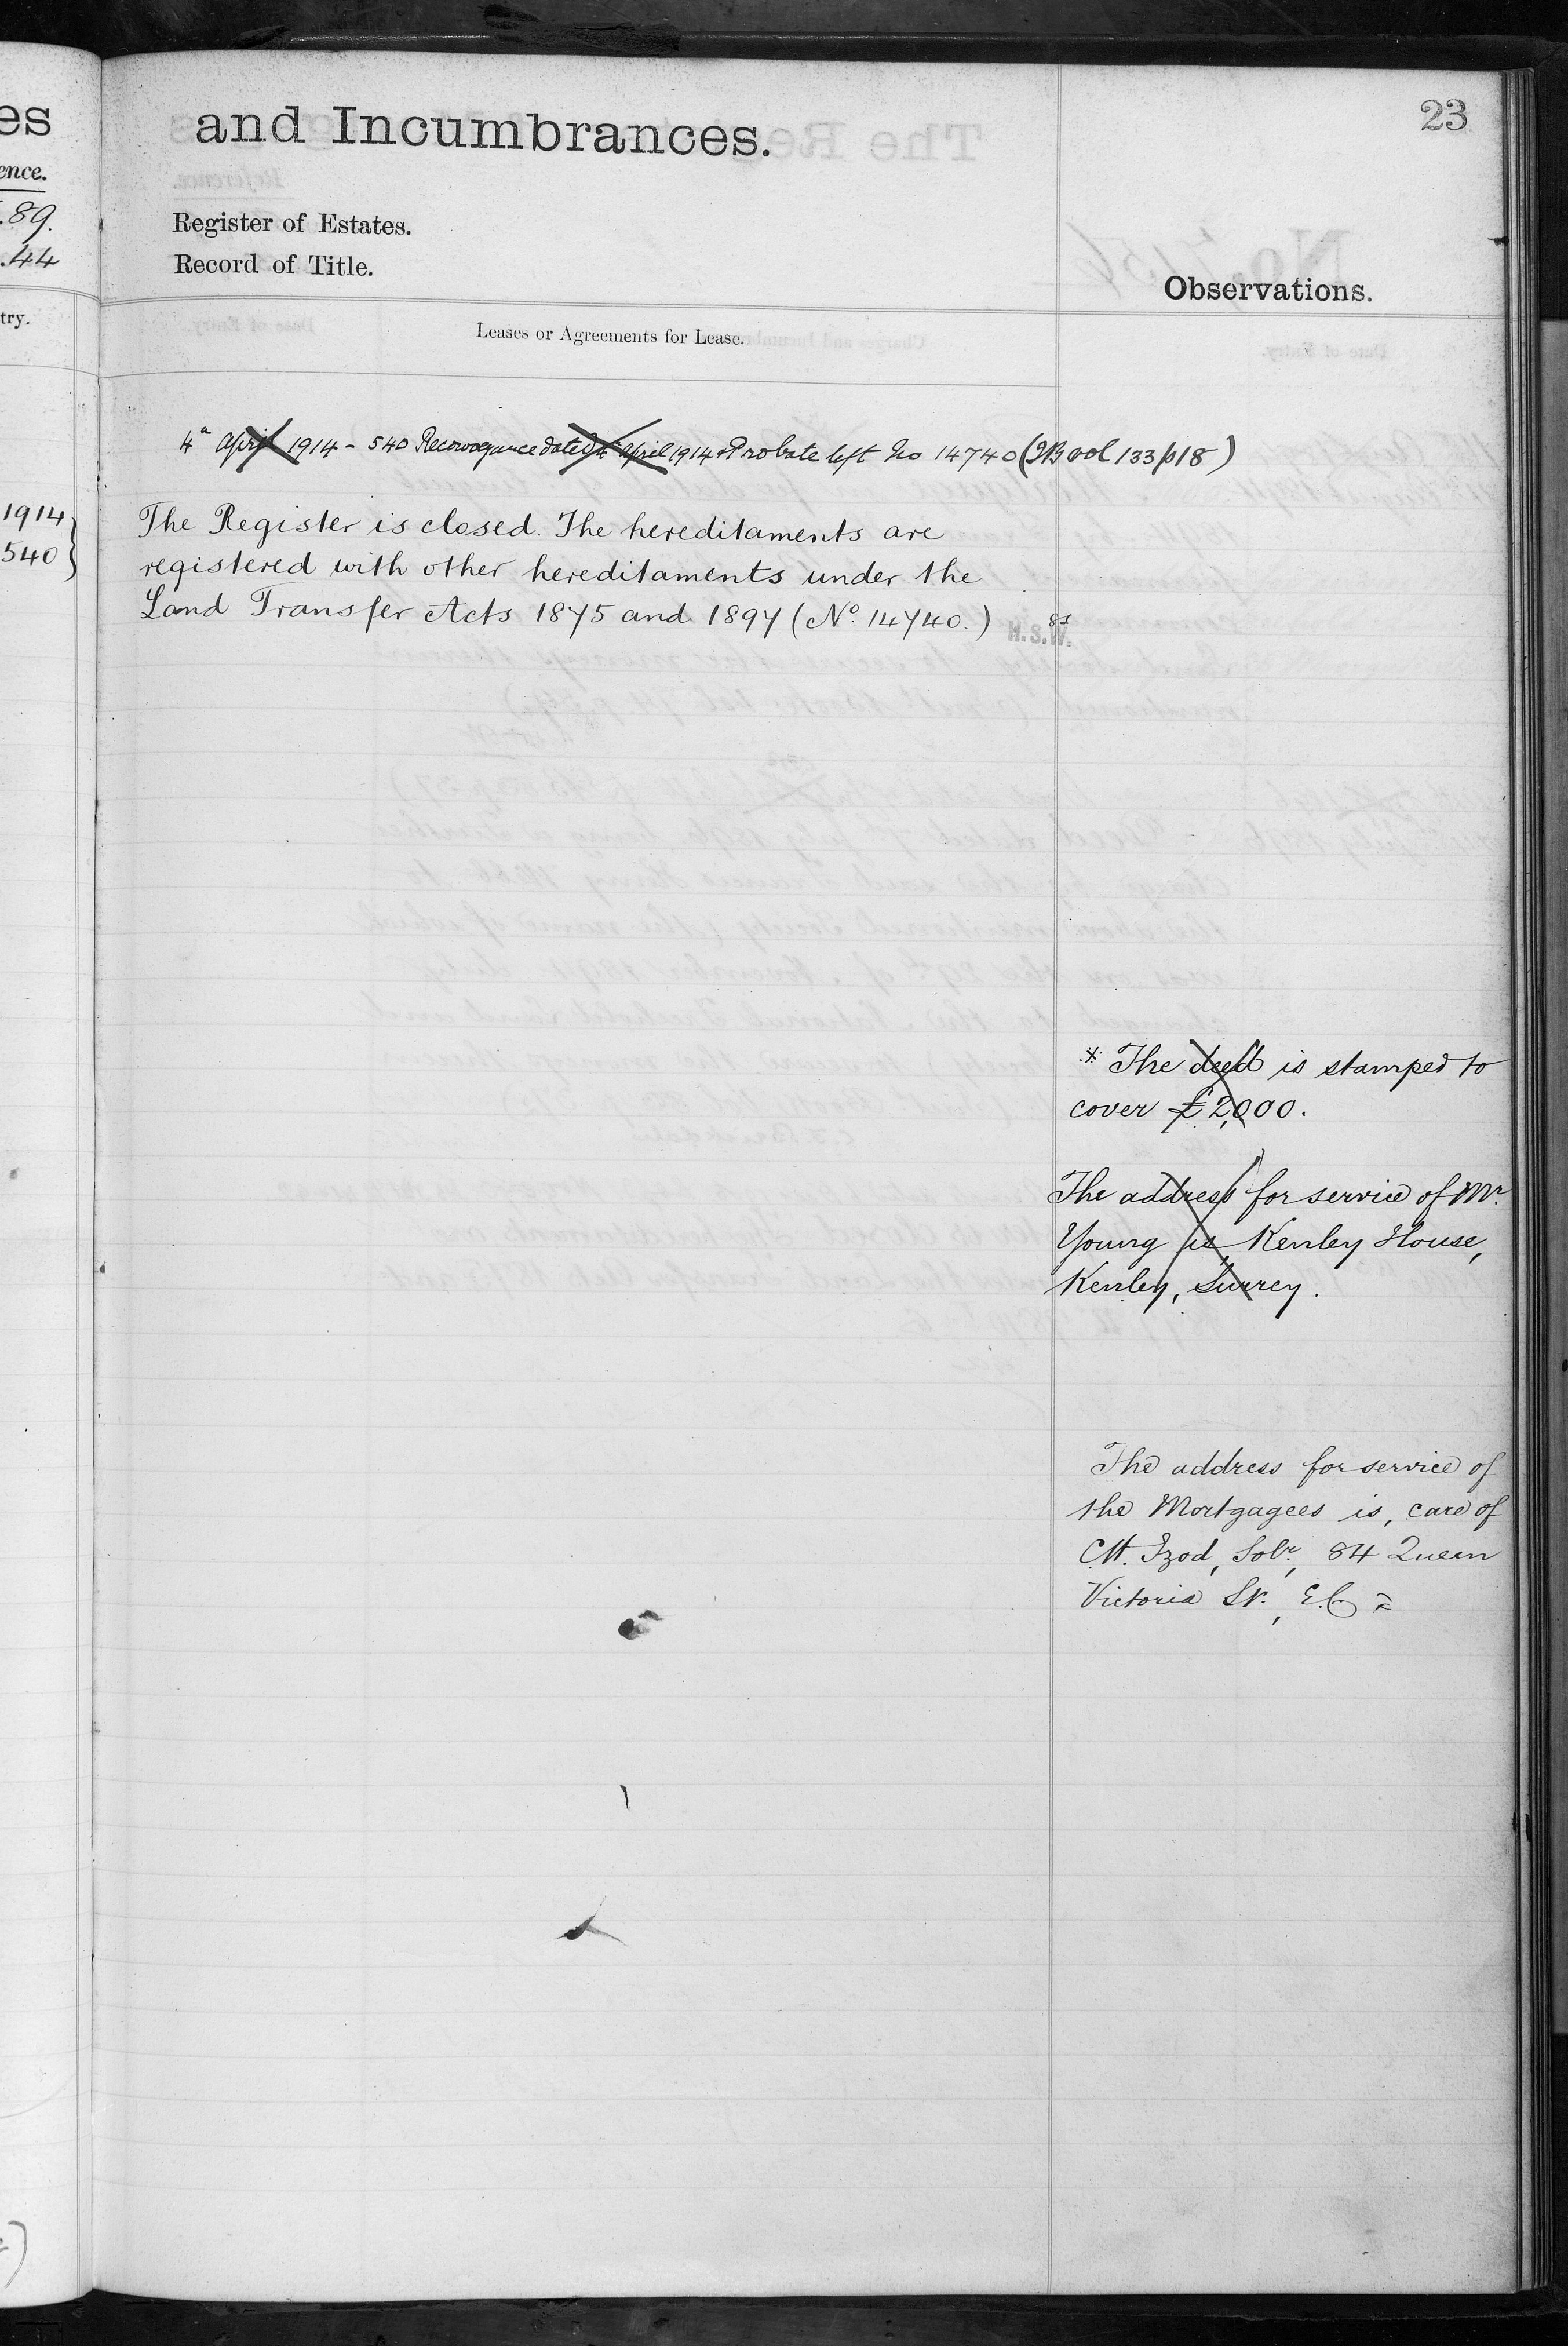 es
ence.
.89.
.44
try.
1914
540
and Incumbrances.
23
Register of Estates.
Record of Title.
Observations.
Leases or Agreements for Lease.
4th April 1914 - 540 Reconveyance dated 4 April 1914 & Probate left No 14740 (IB vol 133 p18)
The Register is closed. The hereditaments are
registered with other hereditaments under the
Land Transfer Acts 1875 and 1897 (No. 14740.)
H.S.W.
* The deed is stamped to
cover £2,000.
The address for service of Mr.
Young is, Kenley House,
Kenley, Surrey.
The address for service of
the Mortgagees is, care of
Izod, Solr., 84 Queen
Victoria St., E.C.